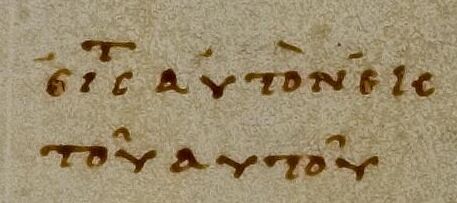 εἰς τ αὐτὸν εἰς
τοῦ αυτοῦ